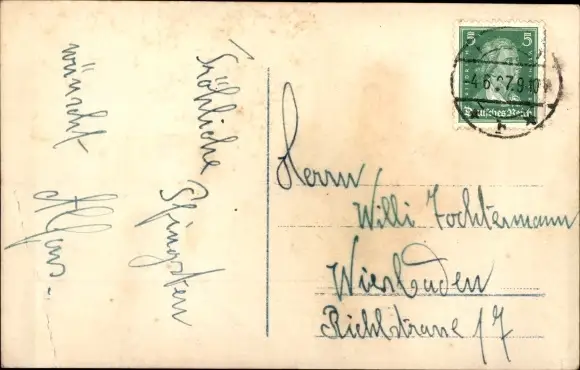 Fröhliche
Pfingsten
wünscht
5 5
4.6.27.9
Deutsches Reich
Herrn
Willi Tochtermann
Wiesbaden
Riehlstrasse 17